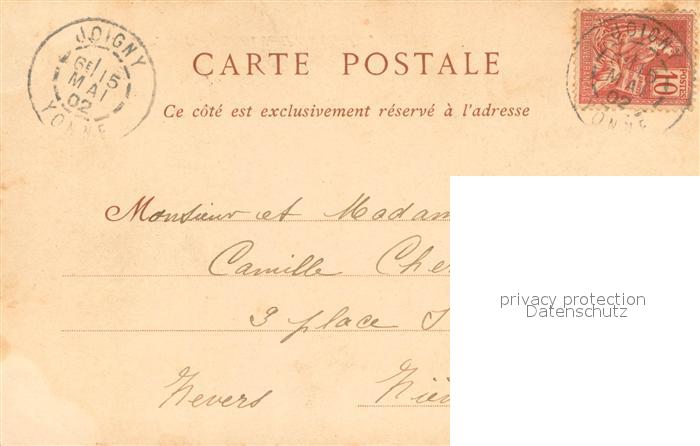 JOIGNY
6E/15
MAI
02
YONNE
CARTE POSTALE
Ce côté est exclusivement réservé à l'adresse
10
POSTES
JOIGNY
MAI
02
YONNE
Monsieur et Madam
Camille Che
3 place
Nevers Niè
privacy protection
Datenschutz